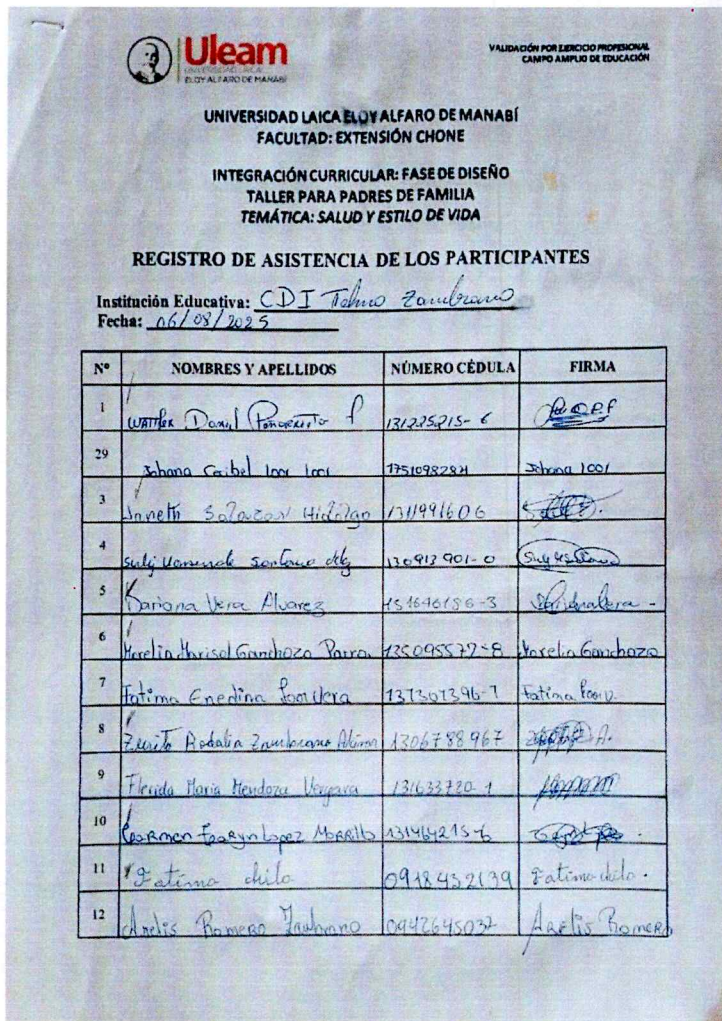 Uleam
UNIVERSIDAD LAICA
ELOY ALFARO DE MANABÍ
VALIDACIÓN POR EJERCICIO PROFESIONAL
CAMPO AMPLIO DE EDUCACIÓN
UNIVERSIDAD LAICA ELOY ALFARO DE MANABÍ
FACULTAD: EXTENSIÓN CHONE
INTEGRACIÓN CURRICULAR: FASE DE DISEÑO
TALLER PARA PADRES DE FAMILIA
TEMÁTICA: SALUD Y ESTILO DE VIDA
REGISTRO DE ASISTENCIA DE LOS PARTICIPANTES
Institución Educativa: CDI Telmo Zambrano
Fecha: 06/08/2025
Nº NOMBRES Y APELLIDOS NÚMERO CÉDULA FIRMA
1 Daniel 131225215-6
29 Johana 1751098284 Johana
3 Janeth Salazar Hidalgo 1311991606
4 130913901-0
5 Dariana Vera Alvarez
6 Morelia Marisol Ganchozo Parra 135095572-8 Morelia Ganchozo
7 Fatima Enedina Fatima
8 Rodalia Zambrano 1306788967
9 Florida Maria Mendoza Vergara 131633720-1
10 Carmen Lopez
11 Fatima chila 0918432139 Fatima chila.
12 Arelis Romero Zambrano 0942645037 Arelis Romero